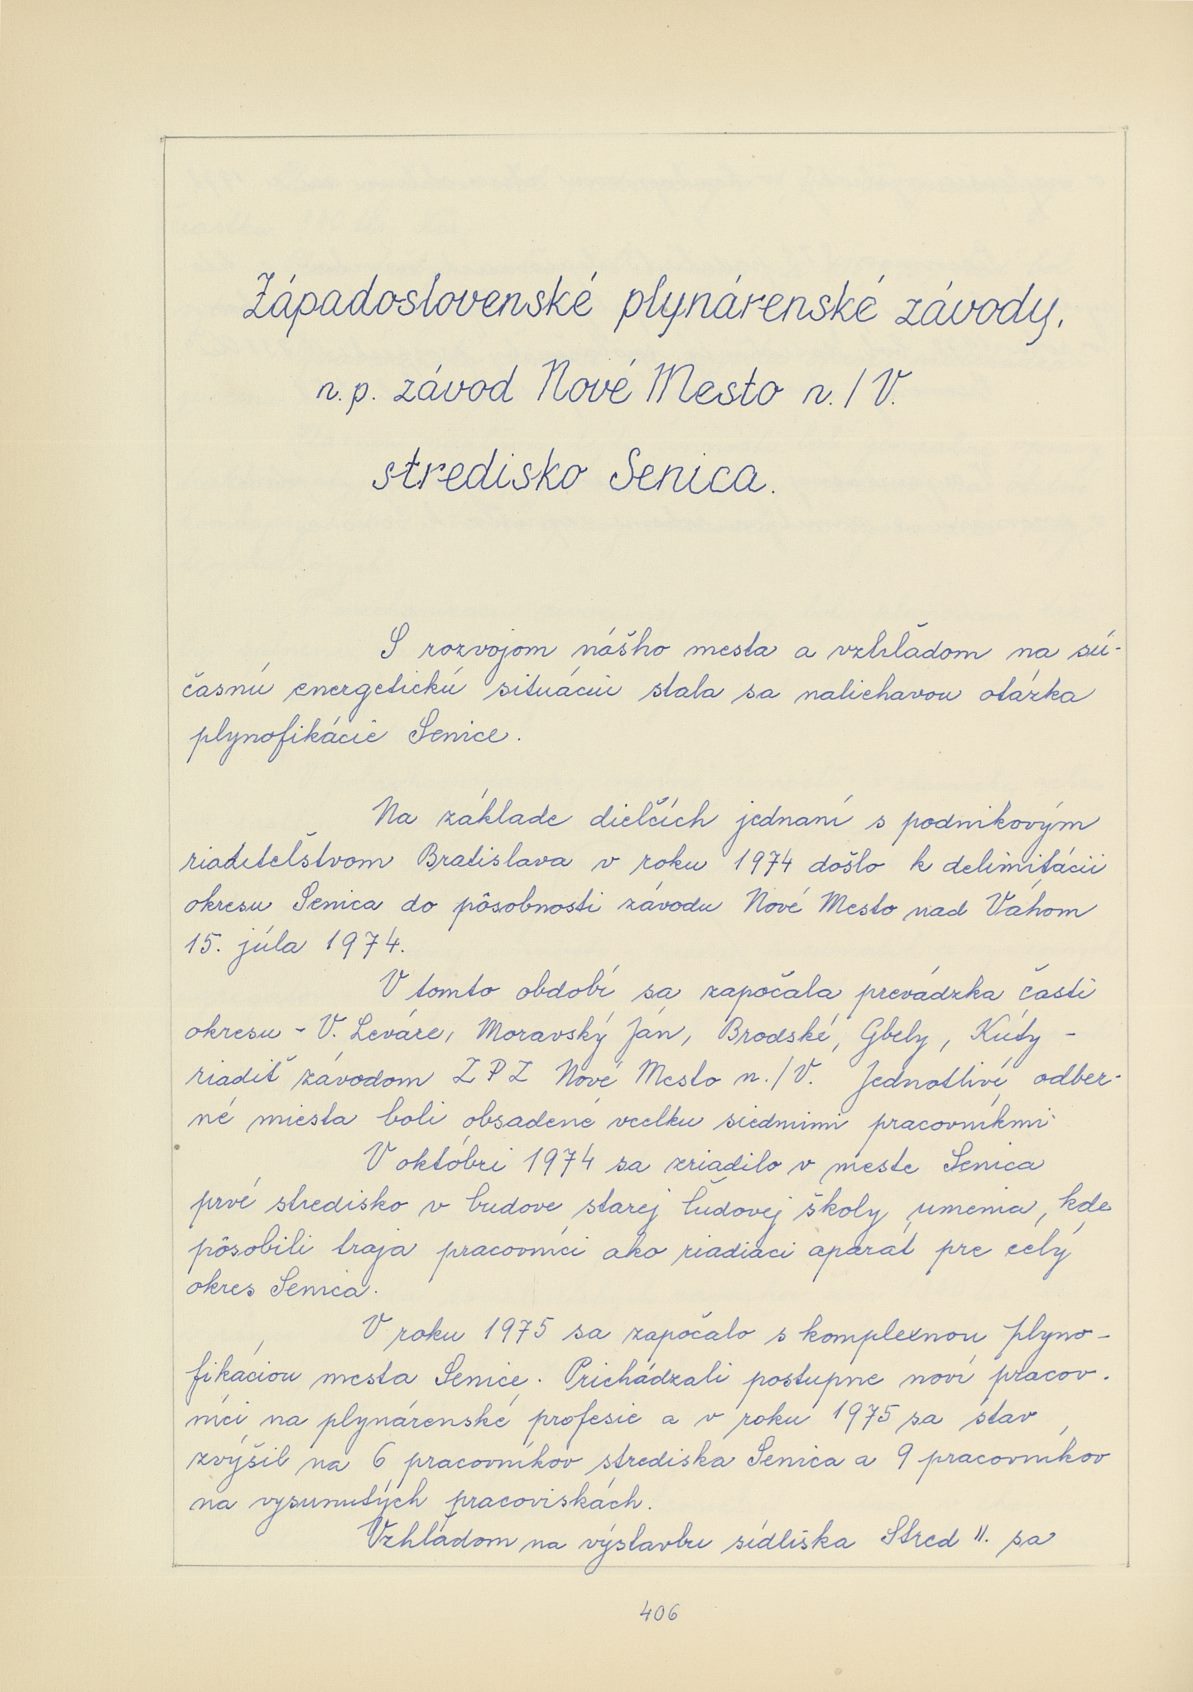 Západoslovenské plynárenské závody,
n.p. závod Nové Mesto n./V.
stredisko Senica.
S rozvojom nášho mesta a vzhľadom na sú-
časnú energetickú situáciu stala sa naliehavou otázka
plynofikácie Senice.
Na základe dielčích jednaní s podnikovým
riaditeľstvom Bratislava v roku 1974 došlo k delimitácii
okresu Senica do pôsobnosti závodu Nové Mesto nad Váhom
15. júla 1974.
V tomto období sa započala prevádzka časti
okresu - V. Leváre, Moravský Ján, Brodské, Gbely, Kúty -
riadiť závodom ZPZ Nové Mesto n./V. Jednotlivé odber-
né miesta boli obsadené vcelku siedmimi pracovníkmi
V októbri 1974 sa zriadilo v meste Senica
prvé stredisko v budove starej ľudovej školy umenia, kde
pôsobili traja pracovníci ako riadiaci aparát pre celý
okres Senica.
V roku 1975 sa započalo s komplexnou plyno-
fikáciou mesta Senice. Prichádzali postupne noví pracov-
níci na plynárenské profesie a v roku 1975 sa stav
zvýšil na 6 pracovníkov strediska Senica a 9 pracovníkov
na vysunutých pracoviskách.
Vzhľadom na výstavbu sídliska Stred II. sa
406